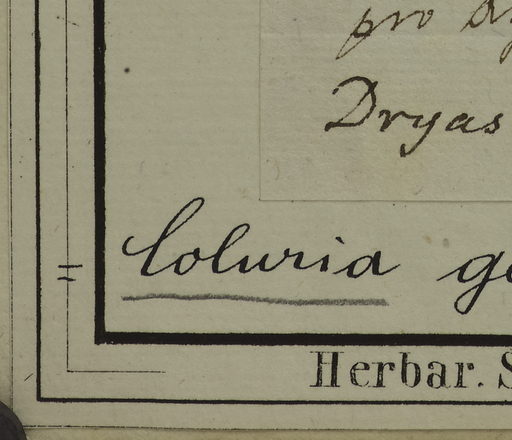 pro
Dryas
Coluria ge
Herbar. S